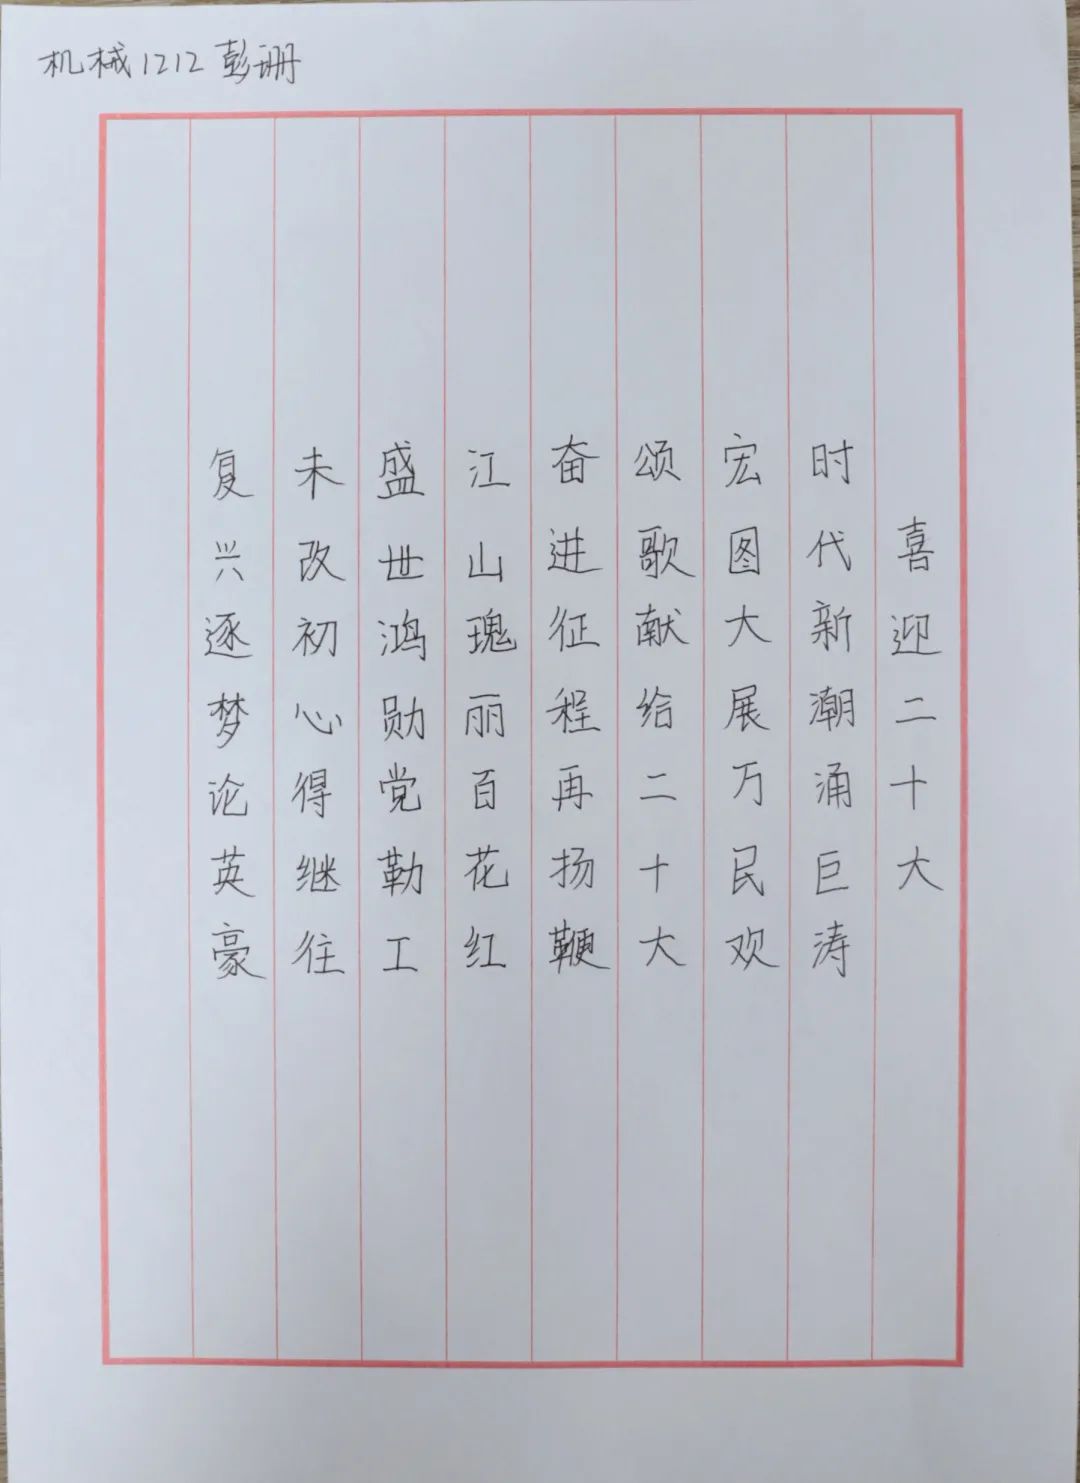 机械1212彭珊
喜迎二十大
时代新潮涌巨涛
宏图大展万民欢
颂歌献给二十大
奋进征程再扬鞭
江山瑰丽百花红
盛世鸿勋党勒工
未改初心得继往
复兴逐梦论英豪